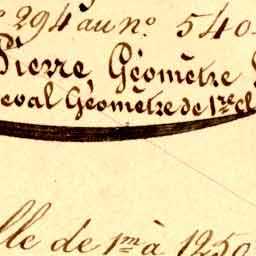 294 au n.° 540
Pierre Géomètre
eval Géomètre de 1.re cl
lle de 1.m à 1250